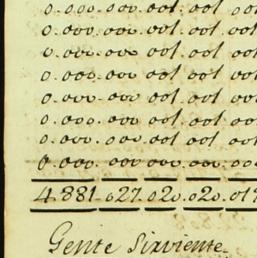 0.000.000.001.001.00
0.000.000.001.001.00
0.000.000.001.001.00
0.000.000.001.001.00
0.000.000.001.001.00
0.000.000.001.001.00
0.000.000.001.001.00
0.000.000.000.000.00
4.881.027.020.020.017
Gente Sirviente